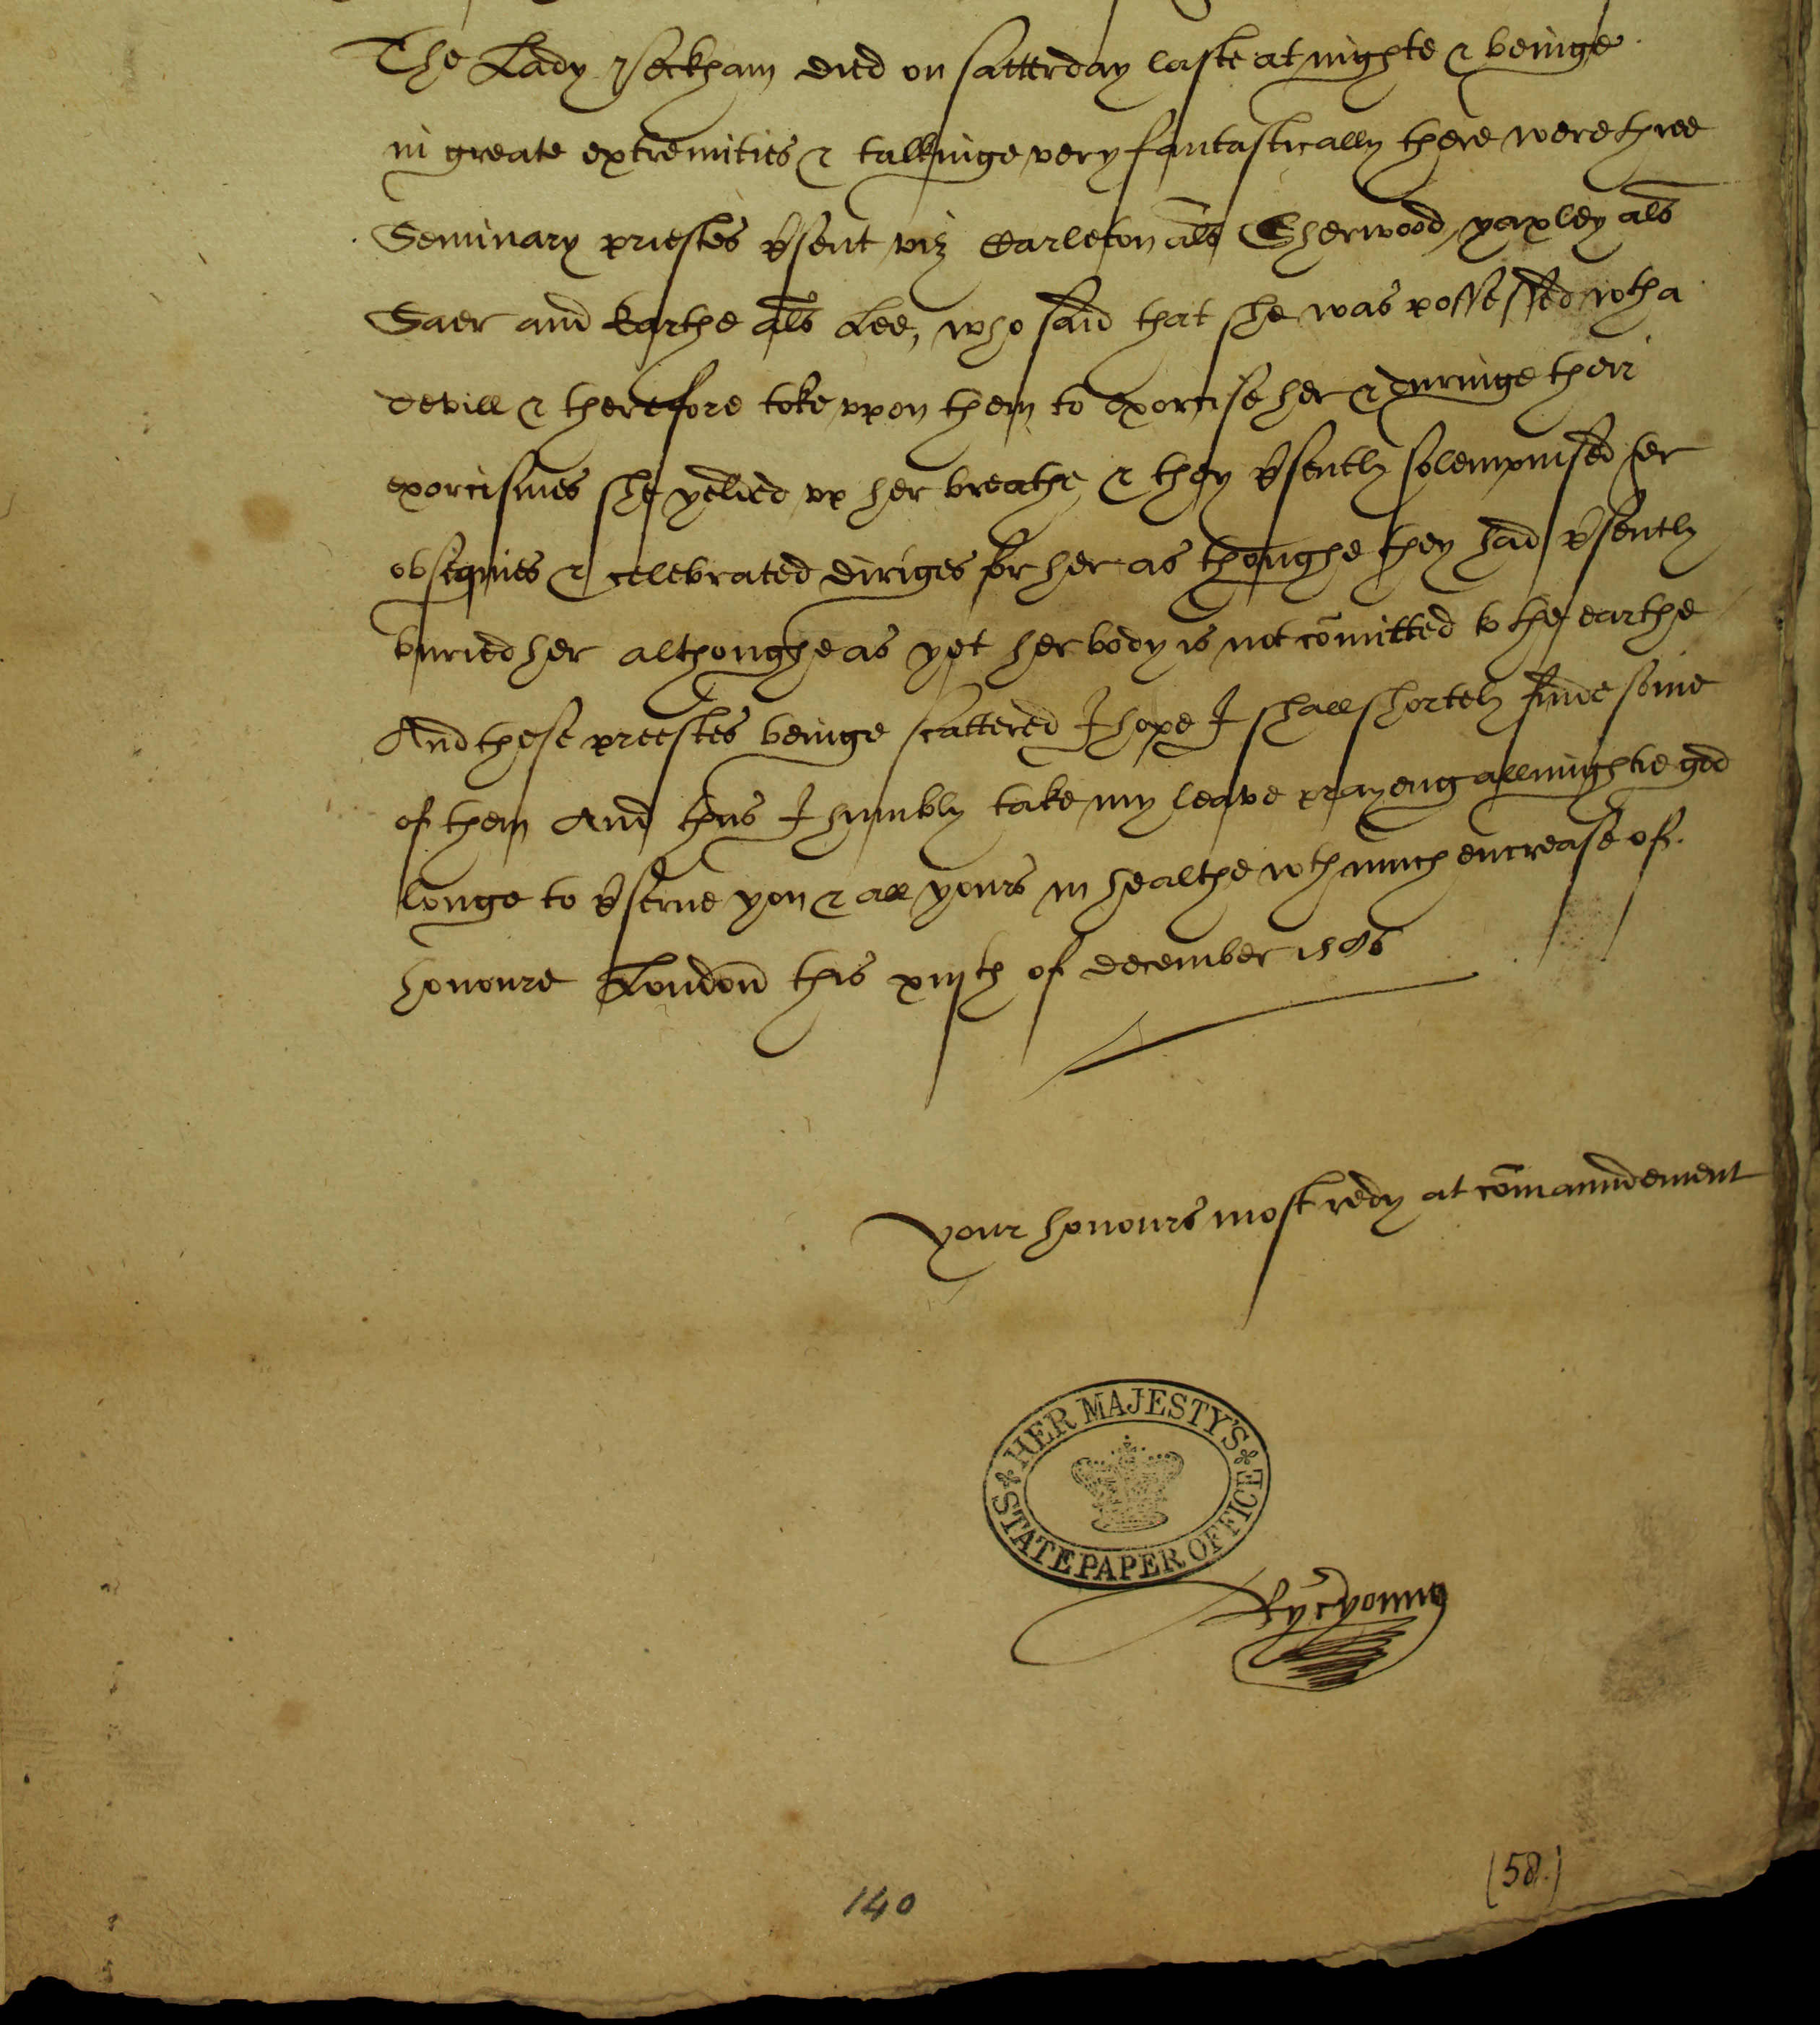 The Lady Peckham died on satterday laste at nighte & beinge
in greate extremities & talkinge very fantastically there were three
Seminary priestes p̄sent viz Earleton al̄s Sherwood, yaxley al̄s
Saer and Barthe al̄s Lee, who said that she was possessed wth a
devill & therefore toke vpon them to exorcise her & duringe their
exorcismes she yelded vp her breathe, & they p̄sently solempnised her
obsequies & celebrated diriges for her as thoughe they had p̄sently
buried her althoughe as yet her body is not cōmitted to the earthe
And these preestes beinge scattered I hope I shall shortely finde some
of them And thus I humbly take my leave prayeng allmightie god
longe to p̄serue you & all yours in healthe wth much encrease of
honoure London this xiijth of december 1586
your honours most redy at cōmaundement
HER MAJESTY'S
STATE PAPER OFFICE
Ryc young
(58.)
140